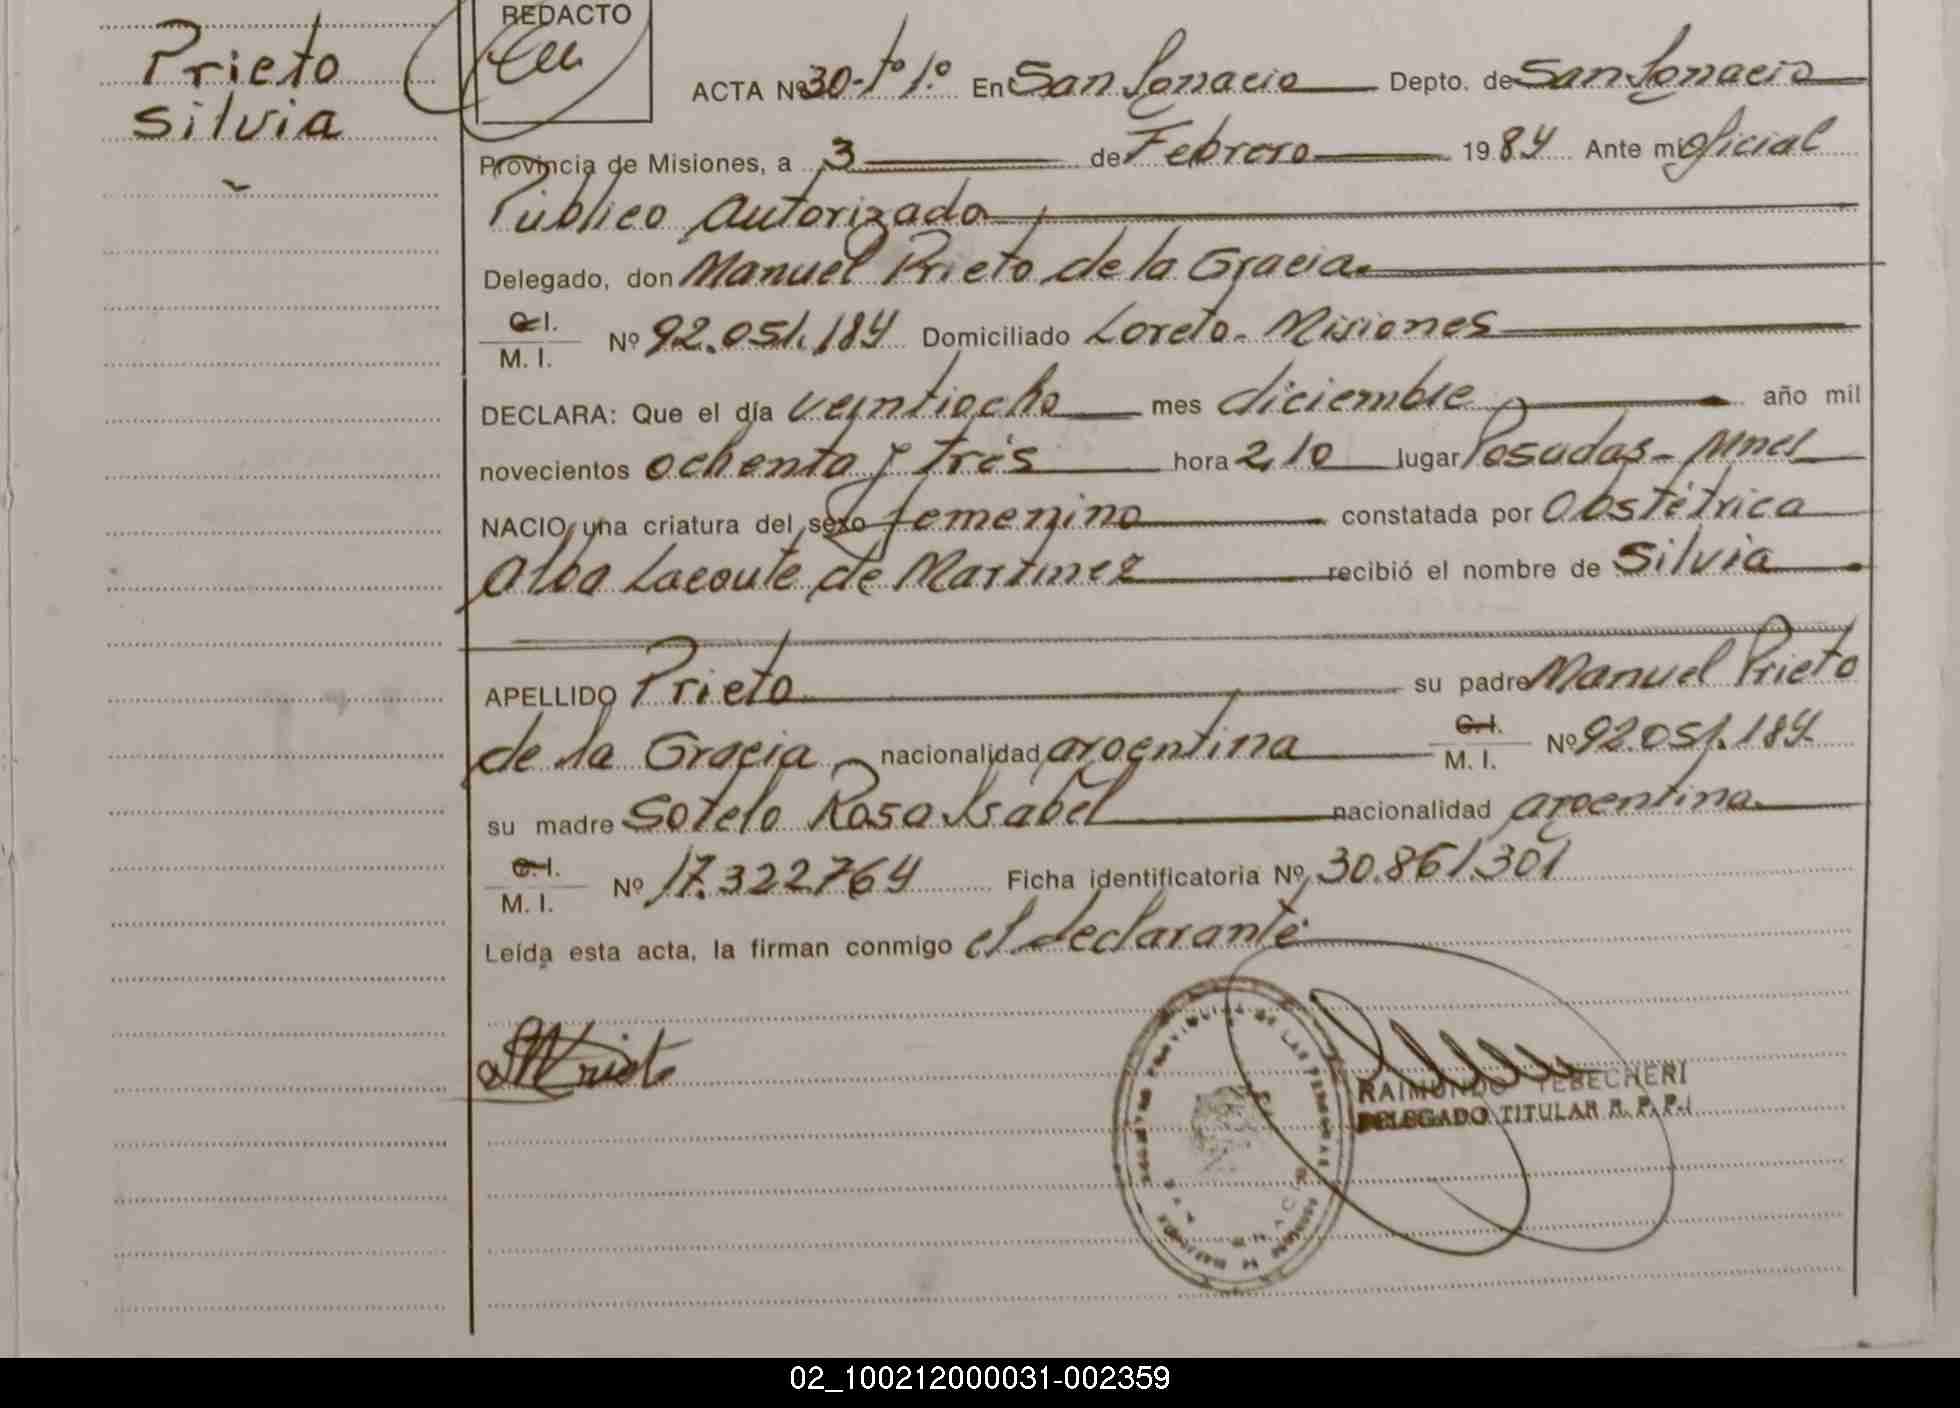 REDACTO
Prieto
Silvia
ACTA Nº 30-Tº 1º. En San Ignacio Depto. de San Ignacio
Provincia de Misiones, a 3 de Febrero 1984 Ante mi Oficial
Público Autorizado
Delegado, don Manuel Prieto de la Gracia
C.I.
M. I. Nº 92.051.184 Domiciliado Loreto - Misiones
DECLARA: Que el día veintiocho mes diciembre año mil
novecientos ochenta y tres hora 2,10 lugar Posadas - Mnes
NACIO una criatura del sexo femenino constatada por Obstétrica
Alba Lacoute de Martinez recibió el nombre de Silvia
APELLIDO Prieto su padre Manuel Prieto
de la Gracia nacionalidad argentina C.I. M. I. Nº 92.051.184
su madre Sotelo Rosa Isabel nacionalidad argentina
C.I.
M. I. Nº 17.322.764 Ficha identificatoria Nº 30.861.301
Leída esta acta, la firman conmigo el declarante
RAIMUNDO TEBECHERI
DELEGADO TITULAR R. P. P.
02_100212000031-002359